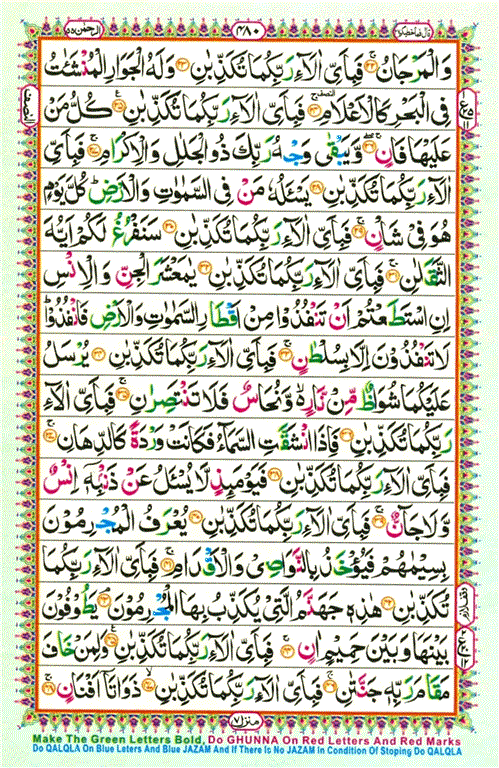 الرحمٰن ۵۵ ۴۸۰ قال فما خطبکم ۲۷
وَالۡمَرۡجَانُ ۚ‏﴿۲۲﴾ فَبِاَىِّ اٰلَاۤءِ رَبِّكُمَا تُكَذِّبٰنِ‏ ﴿۲۳﴾ وَلَهُ الۡجَوَارِ الۡمُنۡشَئٰتُ
فِى الۡبَحۡرِ كَالۡاَعۡلَامِ‌ۚ‏ ﴿۲۴﴾ فَبِاَىِّ اٰلَاۤءِ رَبِّكُمَا تُكَذِّبٰنِ‏ ﴿۲۵﴾ كُلُّ مَنۡ
عَلَيۡهَا فَانٍ‌ ۚ‏ ﴿۲۶﴾ وَّيَبۡقٰى وَجۡهُ رَبِّكَ ذُو الۡجَلٰلِ وَالۡاِكۡرَامِ‌ۚ‏ ﴿۲۷﴾ فَبِاَىِّ
اٰلَاۤءِ رَبِّكُمَا تُكَذِّبٰنِ‏ ﴿۲۸﴾ يَسۡـَٔـلُهٗ مَنۡ فِى السَّمٰوٰتِ وَالۡاَرۡضِ‌ؕ كُلَّ يَوۡمٍ
هُوَ فِىۡ شَاۡنٍ‌ۚ‏ ﴿۲۹﴾ فَبِاَىِّ اٰلَاۤءِ رَبِّكُمَا تُكَذِّبٰنِ‏ ﴿۳۰﴾ سَنَفۡرُغُ لَكُمۡ اَيُّهَ
الثَّقَلٰنِ‌ۚ‏ ﴿۳۱﴾ فَبِاَىِّ اٰلَاۤءِ رَبِّكُمَا تُكَذِّبٰنِ‏ ﴿۳۲﴾ يٰمَعۡشَرَ الۡجِنِّ وَالۡاِنۡسِ
اِنِ اسۡتَطَعۡتُمۡ اَنۡ تَنۡفُذُوۡا مِنۡ اَقۡطَارِ السَّمٰوٰتِ وَالۡاَرۡضِ فَانْفُذُوۡا‌ؕ
لَا تَنۡفُذُوۡنَ اِلَّا بِسُلۡطٰنٍ‌ۚ‏ ﴿۳۳﴾ فَبِاَىِّ اٰلَاۤءِ رَبِّكُمَا تُكَذِّبٰنِ‏ ﴿۳۴﴾ يُرۡسَلُ
عَلَيۡكُمَا شُوَاظٌ مِّنۡ نَّارٍ ۙ وَّنُحَاسٌ فَلَا تَنۡتَصِرٰنِ‌ۚ‏ ﴿۳۵﴾ فَبِاَىِّ اٰلَاۤءِ
رَبِّكُمَا تُكَذِّبٰنِ‏ ﴿۳۶﴾ فَاِذَا انْشَقَّتِ السَّمَآءُ فَكَانَتۡ وَرۡدَةً كَالدِّهَانِ‌ۚ‏ ﴿۳۷﴾
فَبِاَىِّ اٰلَاۤءِ رَبِّكُمَا تُكَذِّبٰنِ‏ ﴿۳۸﴾ فَيَوۡمَٮِٕذٍ لَّا يُسۡـَٔـلُ عَنۡ ذَنۡۢبِهٖۤ اِنۡسٌ
وَّلَا جَآنٌّ‌ۚ‏ ﴿۳۹﴾ فَبِاَىِّ اٰلَاۤءِ رَبِّكُمَا تُكَذِّبٰنِ‏ ﴿۴۰﴾ يُعۡرَفُ الۡمُجۡرِمُوۡنَ
بِسِيۡمٰهُمۡ فَيُؤۡخَذُ بِالنَّوَاصِىۡ وَ الۡاَقۡدَامِ‌ۚ‏ ﴿۴۱﴾ فَبِاَىِّ اٰلَاۤءِ رَبِّكُمَا
تُكَذِّبٰنِ‏ ﴿۴۲﴾ هٰذِهٖ جَهَنَّمُ الَّتِىۡ يُكَذِّبُ بِهَا الۡمُجۡرِمُوۡنَ‌ۘ‏ ﴿۴۳﴾ يَطُوۡفُوۡنَ
بَيۡنَهَا وَبَيۡنَ حَمِيۡمٍ اٰنٍ‌ۚ‏ ﴿۴۴﴾ فَبِاَىِّ اٰلَاۤءِ رَبِّكُمَا تُكَذِّبٰنِ‏ ﴿۴۵﴾ وَلِمَنۡ خَافَ
مَقَامَ رَبِّهٖ جَنَّتٰنِ‌ۚ‏ ﴿۴۶﴾ فَبِاَىِّ اٰلَاۤءِ رَبِّكُمَا تُكَذِّبٰنِۙ‏ ﴿۴۷﴾ ذَوَاتَاۤ اَفۡنَانٍ‌ۚ‏ ﴿۴۸﴾
منزل ۷
Make The Green Letters Bold, Do GHUNNA On Red Letters And Red Marks
Do QALQLA On Blue Leters And Blue JAZAM And If There Is No JAZAM In Condition Of Stoping Do QALQLA